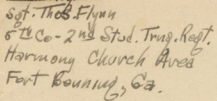 Sgt. Thos. Flynn
5th Co - 2nd Stud. Trng. Regt.
Harmony Church Area
Fort Benning, Ga.